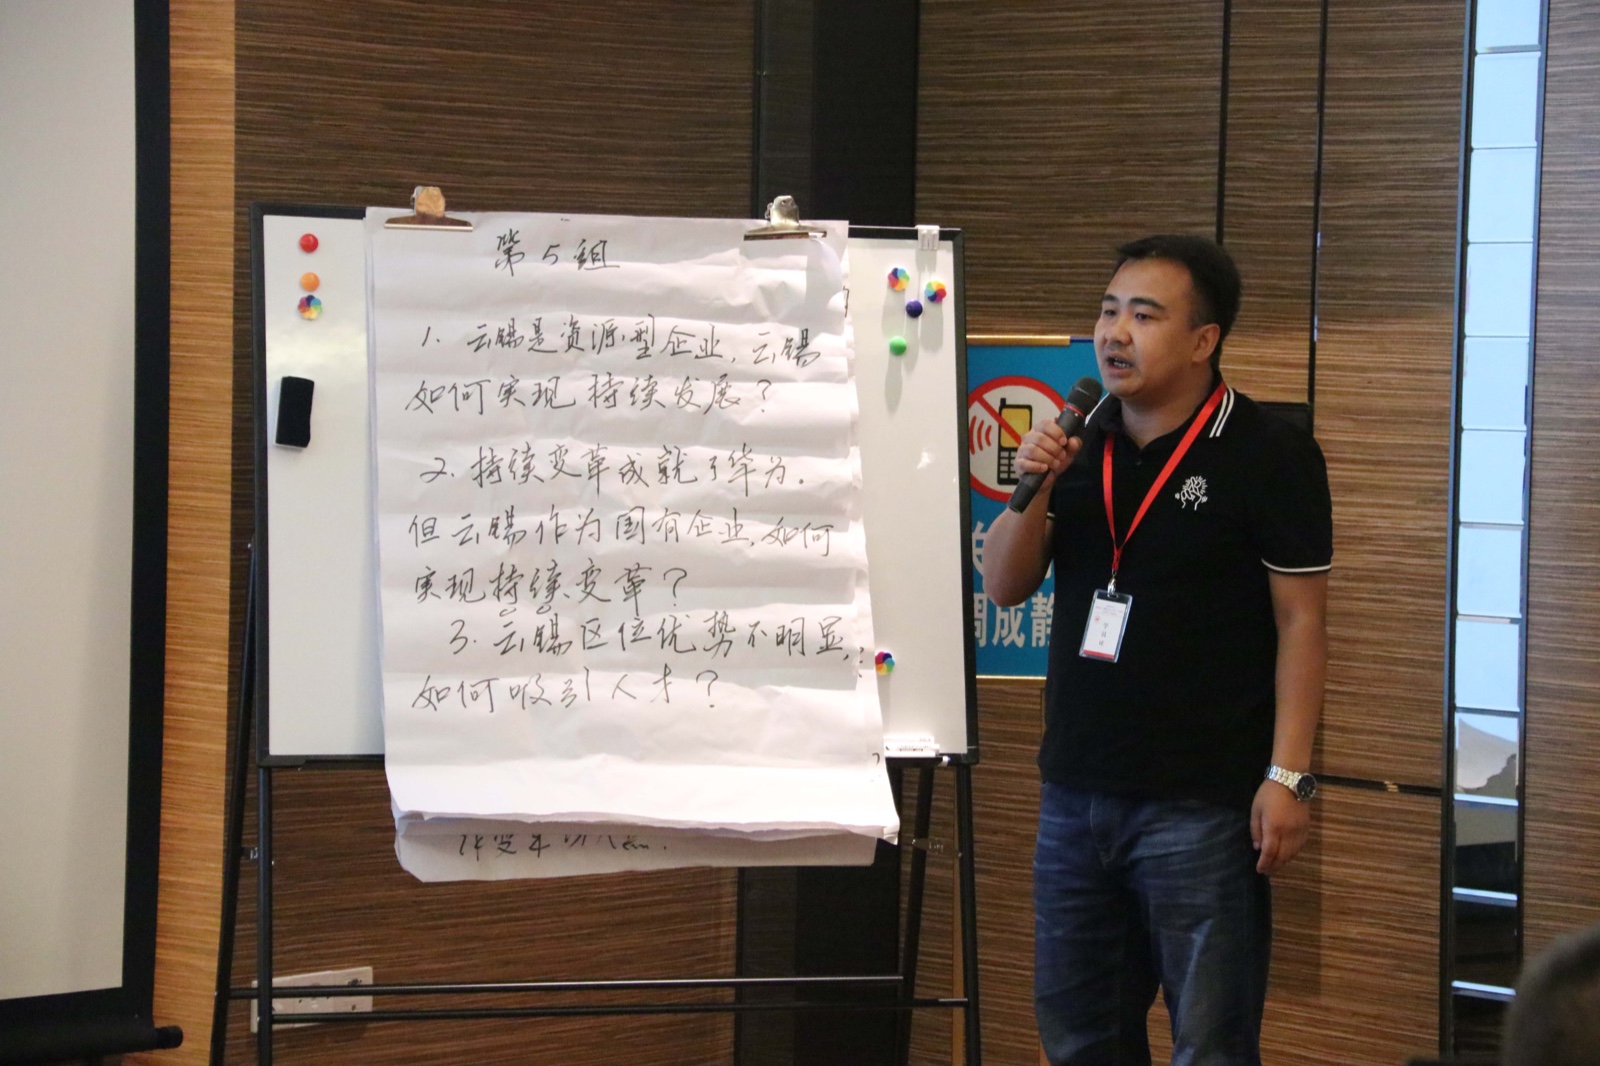 第5组
1. 云锡是资源型企业,云锡
如何实现持续发展?
2. 持续变革成就了华为.
但云锡作为国有企业,如何
实现持续变革?
3. 云锡区位优势不明显,
如何吸引人才?
调成静